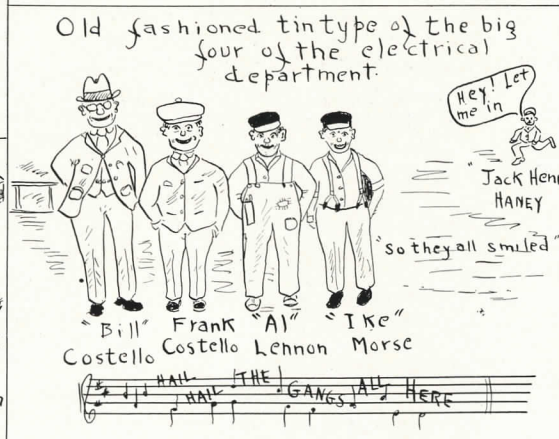 Old fashioned tintype of the big
four of the electrical
department.
Hey! Let
me in
Jack Hen
HANEY
"So they all smiled"
"Bill"
Costello
Frank
Costello
"Al"
Lennon
"Ike"
Morse
HAIL HAIL THE GANGS ALL HERE